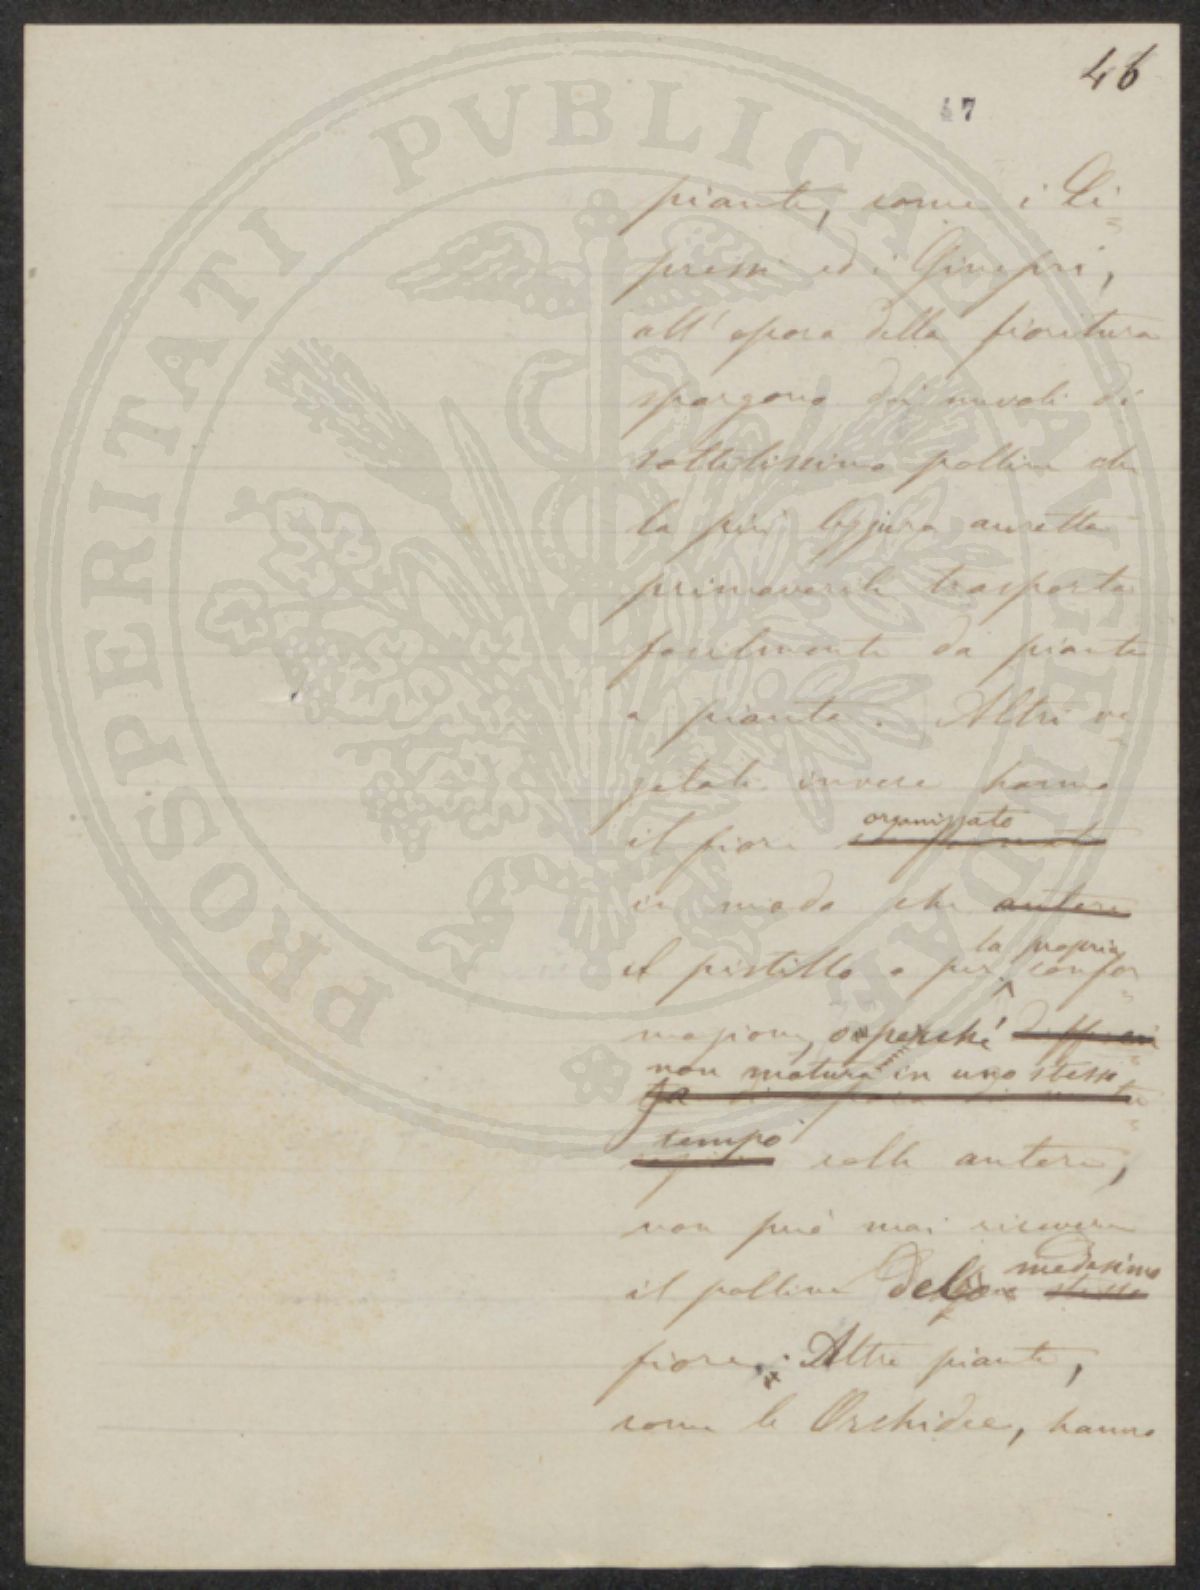 46
47
piante, come i Ci=
pressi ed i Ginepri,
all'epoca della fioritura
spargono dei nuvoli di
sottilissimo polline che
la più leggiera auretta
primaverile trasporta
facilmente da pianta
a pianta. Altri ve=
getali invece hanno
organizzato
il fiore
in modo che antere
la propria
il pistillo o per confor=
mazione, o perché
non matura in uno stesso
tempo colle antere,
non può mai ricevere
medesimo
il polline dello stesso
fiore. Altre piante,
come le Orchidee, hanno
PROSPERITATI PVBLICAE AVGENDAE